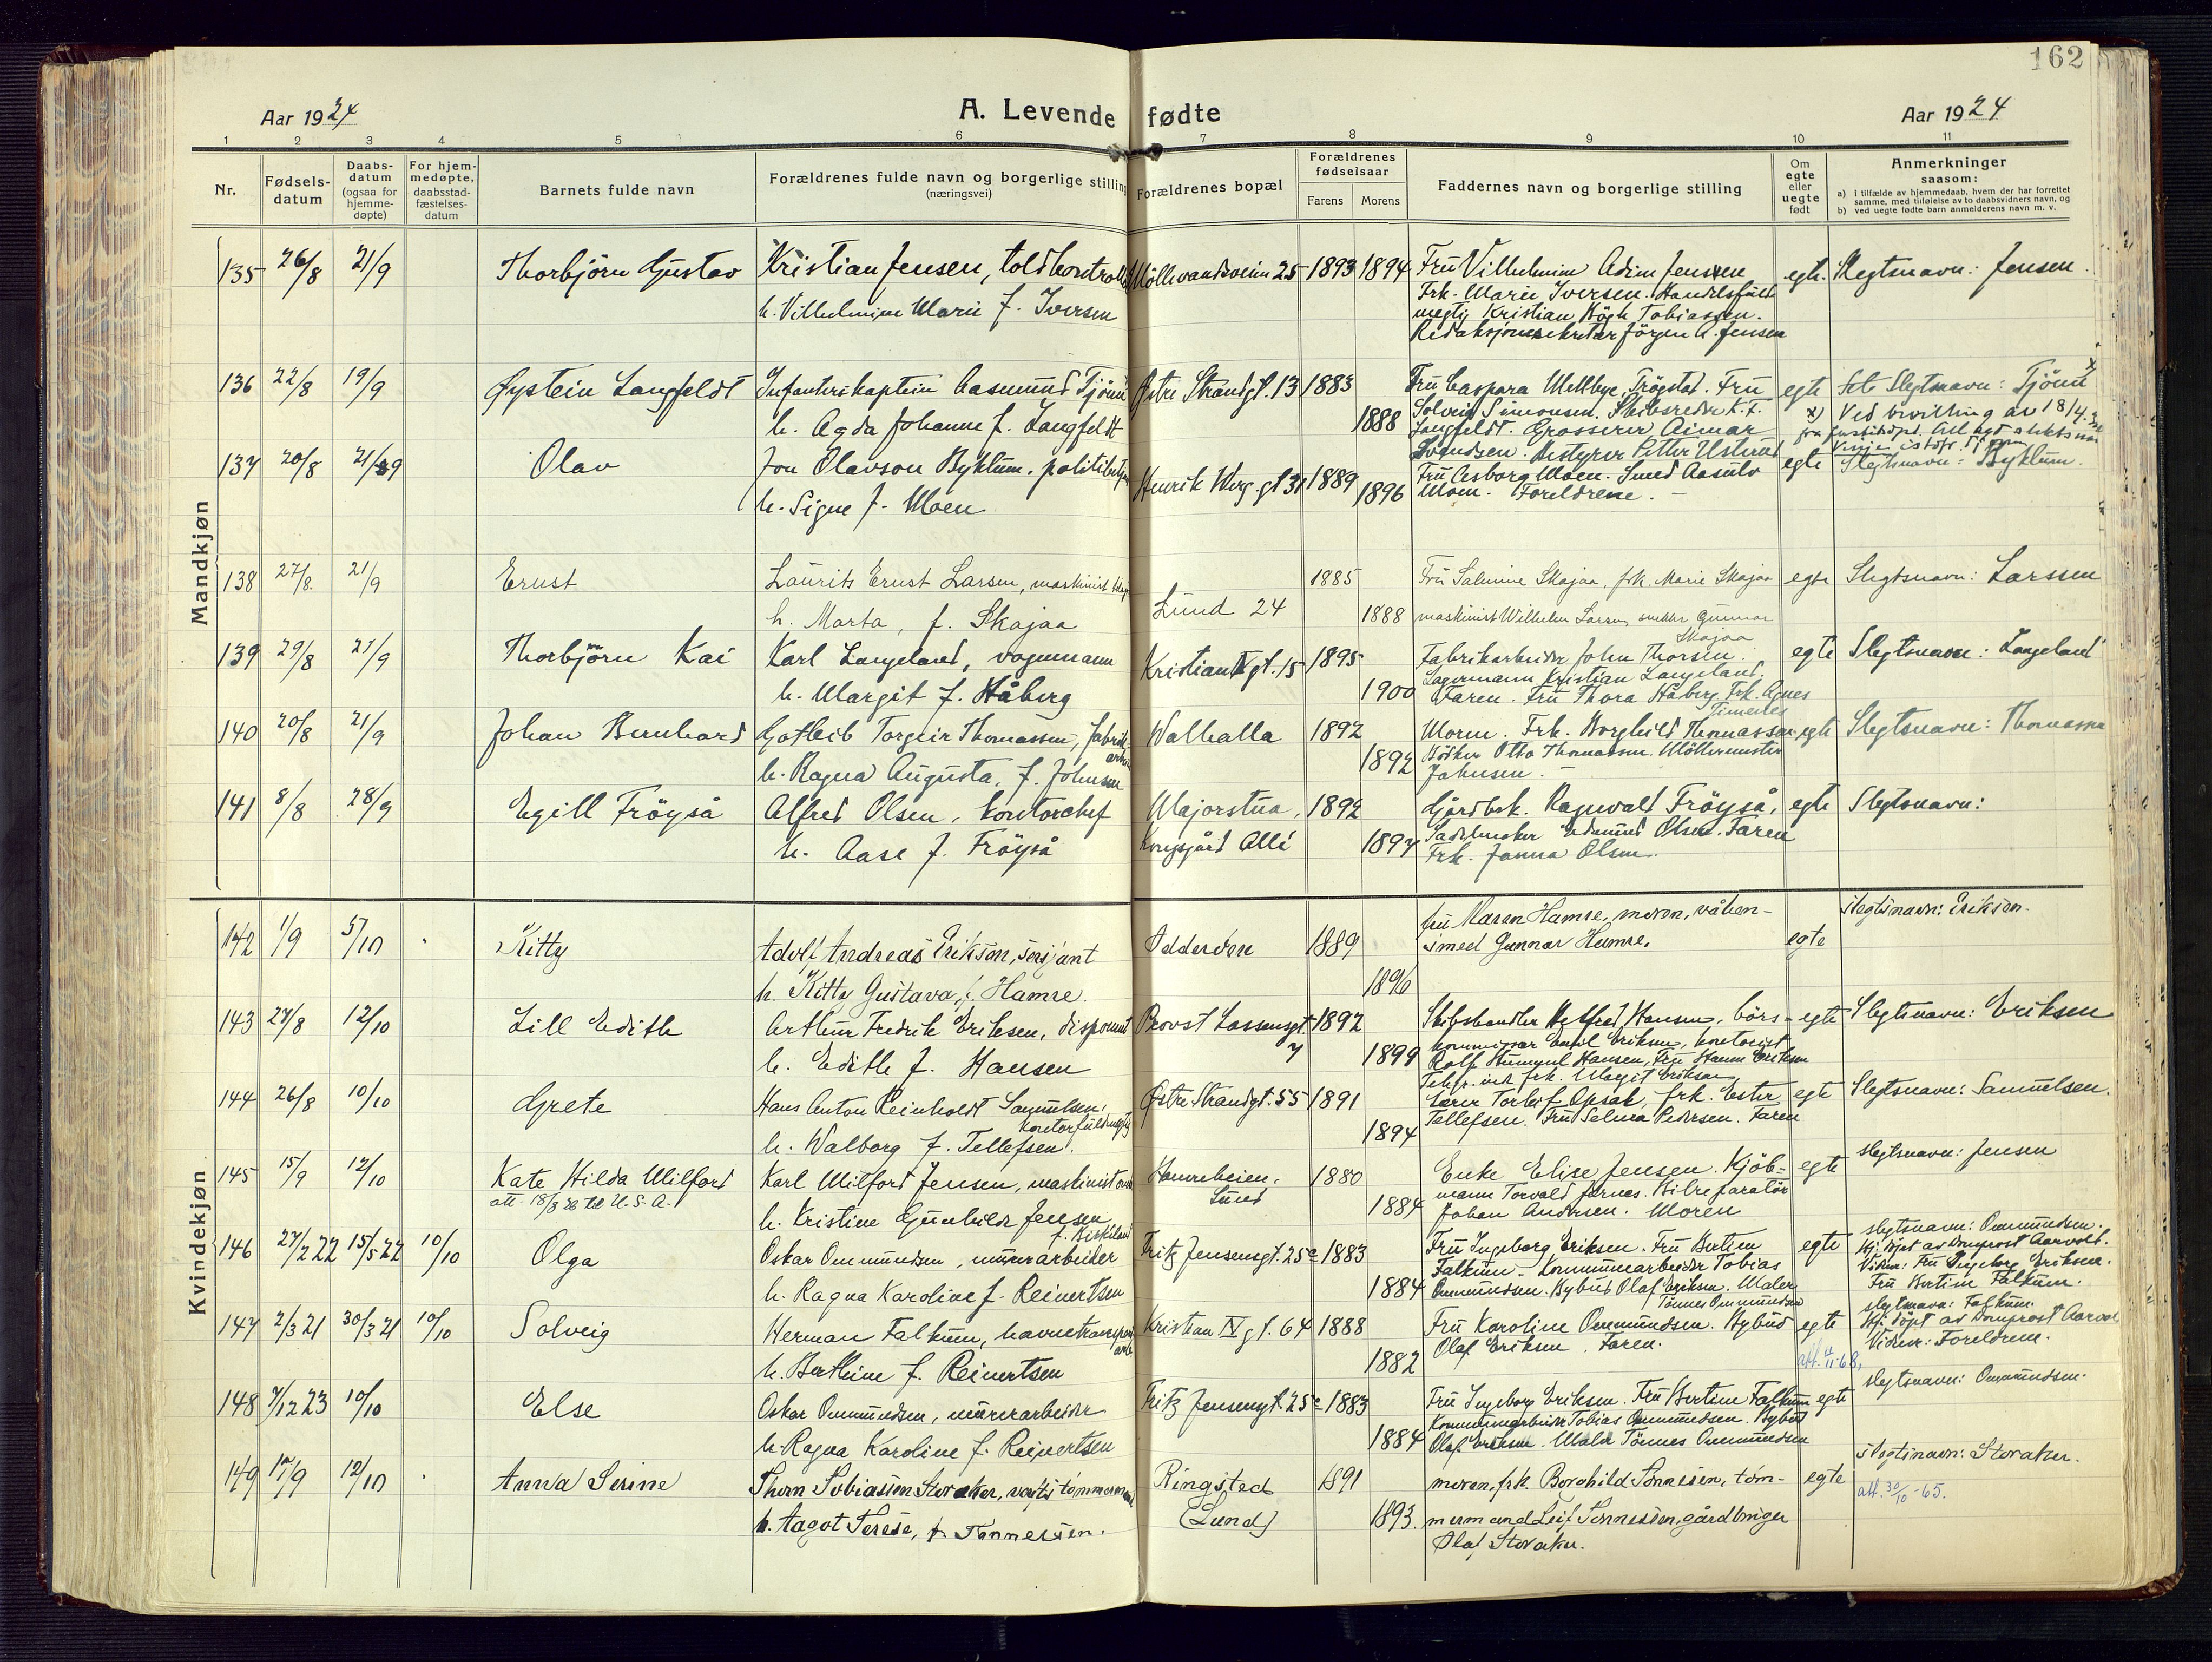 162
Aar 1924
A. Levende fødte
Aar 1924
1 2 3 4 5 6 7 8 9 10 11
Nr.
Fødsels-
datum
Daabs-
datum
(ogsaa for
hjemme-
døpte)
For hjem-
medøpte,
daabsstad-
fæstelses-
datum
Barnets fulde navn
Forældrenes fulde navn og borgerlige stilling
(næringsvei)
Forældrenes bopæl
Forældrenes
fødselsaar
Farens Morens
Faddernes navn og borgerlige stilling
Om
egte
eller
uegte
født
Anmerkninger
saasom:
a) i tilfælde av hjemmedaab, hvem der har forrettet
samme, med tilføielse av to daabsvidners navn, og
b) ved uegte fødte barn anmelderens navn m. v.
Mandkjøn
135 26/8 21/9 Thorbjörn Gustav Kristian Jensen, toldkontrollör Möllevandsveien 25 1893 1894 Fru Vilhelmine Adine Jensen egte. Slegtsnavn: Jensen.
h. Vilhelmine Marie f. Iversen Frk. Marie Iversen. Handelsfuld-
megtig Kristian Högh Tobiassen.
Redaksjonssekretær Jörgen A. Jensen
136 22/8 19/9 Øystein Langfeldt Infanterikaptein Aasmund Tjönn Østre Strandgt. 13 1883 Fru Caspara Mellbye, Trögstad. Fru egte Slegtsnavn: Tjönn x
h. Agda Johanne f. Langfeldt 1888 Solveig Simonsen. Skibsreder K. F. x) Ved bevilling av 18/4
Langfeldt. Grosserer Aimar
Svendsen. Bestyrer Petter Usterud
137 20/8 21/9 Olav Jon Olavson Byklum, politibetjent Henrik Werg.gt 31 1889 Fru Aasborg Moen. Smed Aasulv egte Slegtsnavn: Byklum.
h. Signe f. Moen 1896 Moen. Foreldrene. –
138 27/8. 21/9 Ernst Laurits Ernst Larsen, maskinist Lund 24 1885 Fru Salmine Skajaa, frk. Marie Skajaa egte Slegtsnavn: Larssen
h. Marta, f. Skajaa 1888 maskinist Wilhelm Larsen, snekker Gunnar
Skajaa
139 29/8 21/9 Thorbjörn Kai Karl Langeland, vognmann Kristian IV gt. 15 1895 Fabrikarbeider John Thorsen. egte Slegtsnavn: Langeland
h. Margit f. Håberg 1900 Lagermann Kristian Langeland.
Faren. Fru Thora Håberg. Frk. Agnes
Timenes
140 20/8 21/9 Johan Bernhard Gotleib Torgeir Thomassen, fabrik- Walhalla 1892 Moren. Frk. Borghild Thomassen egte Slegtsnavn: Thomassen
arb.
h. Ragna Augusta, f. Johnsen 1892 Bödker Otto Thomassen. Möllermester
Johnsen. –
141 8/8 28/9 Egill Fröyså Alfred Olsen, kontorchef Majorstua, 1892 Gårdbrk. Ragnvald Fröyså, egte Slegtsnavn:
h. Aase f. Fröyså Kongsgård Allé 1897 Sadelmaker Edmund Olsen. Faren
Frk. Janna Olsen.
Kvindekjøn
142 1/9 5/10 Kitty Adolf Andreas Eriksen, sersjant Odderöen 1889 fru Maren Hamre, moren, våben- egte slegtsnavn: Eriksen.
h. Kitty Gustava, f. Hamre. 1896 smed Gunnar Hamre.
143 27/8 12/10 Lill Edith Arthur Fredrik Eriksen, disponent Provst Lassensgt. 1892 Skibshandler Hansen, börs- egte Slegtsnavn: Eriksen
h. Edith f. Hansen 7 1899 kommissær Emil Eriksen, kontorist
Rolf Hansen, Fru Hanna Eriksen
frk. Margit Eriksen
144 26/8 10/10 Grete Hans Anton Reinholdt Samuelsen, Østre Strandgt. 55 1891 Lærer Torleif Opsal, frk. Ester egte Slegtsnavn: Samuelsen.
kontorfuldmegtig
h. Walborg f. Tellefsen. 1894 Tellefsen. Fru Selma Pedersen. Faren
145 15/9 12/10 Kate Hilda Milford Karl Milford Jensen, maskinist Hamreheien. 1880 Enke Elise Jensen. Kjöb- egte slegtsnavn: Jensen
att. 18/8 26 til U.S.A. Lund mann Torvald Jernes. Bilreparatör
h. Kristine Gunhilde Jensen 1884 Johan Andersen. Moren
f. Birkeland
146 27/2 22 15/5 22 10/10 Olga Oskar Ommundsen, murerarbeider Fritz Jensensgt. 25c 1883 Fru Ingeborg Eriksen. Fru Bertine egte slegtsnavn: Ommundsen.
h. Ragna Karoline f. Reinertsen 1884 Falkum. Kommunearbeider Tobias Hj. döpt av Domprost Aarvold.
Ommundsen. Bybud Olaf Eriksen. Maler Vidner: Fru Ingeborg Eriksen.
Tönnes Ommundsen Fru Bertine Falkum.
147 2/3 21 30/3 21 10/10 Solveig Herman Falkum, havnetransport- Kristian IV gt. 64 1888 Fru Karoline Ommundsen. Bybud egte slegtsnavn: Falkum.
arb.
h. Berthine f. Reinertsen 1882 Olaf Eriksen. Faren. Hj. döpt av Domprost Aarvold
Vidner: Foreldrene.
148 7/12 23 10/10 Else Oskar Ommundsen, murerarbeider Fritz Jensensgt. 25c 1883 Fru Ingeborg Eriksen. Fru Bertine Falkum egte slegtsnavn: Ommundsen.
h. Ragna Karoline f. Reinertsen 1884 Kommunearbeider Tobias Ommundsen. Bybud
Olaf Eriksen. Maler Tönnes Ommundsen
149 17/9 12/10 Anna Serine Thorn Tobiassen Storaker, verkstj. tömmermand Ringsted 1891 moren, frk. Borghild Tönnessen, töm- egte slegtsnavn: Storaker.
h. Aagot Terese, f. Tönnessen. (Lund) 1893. mermand Leif Tönnessen, gårdbruger att. 30/10-65.
Olaf Storaker.